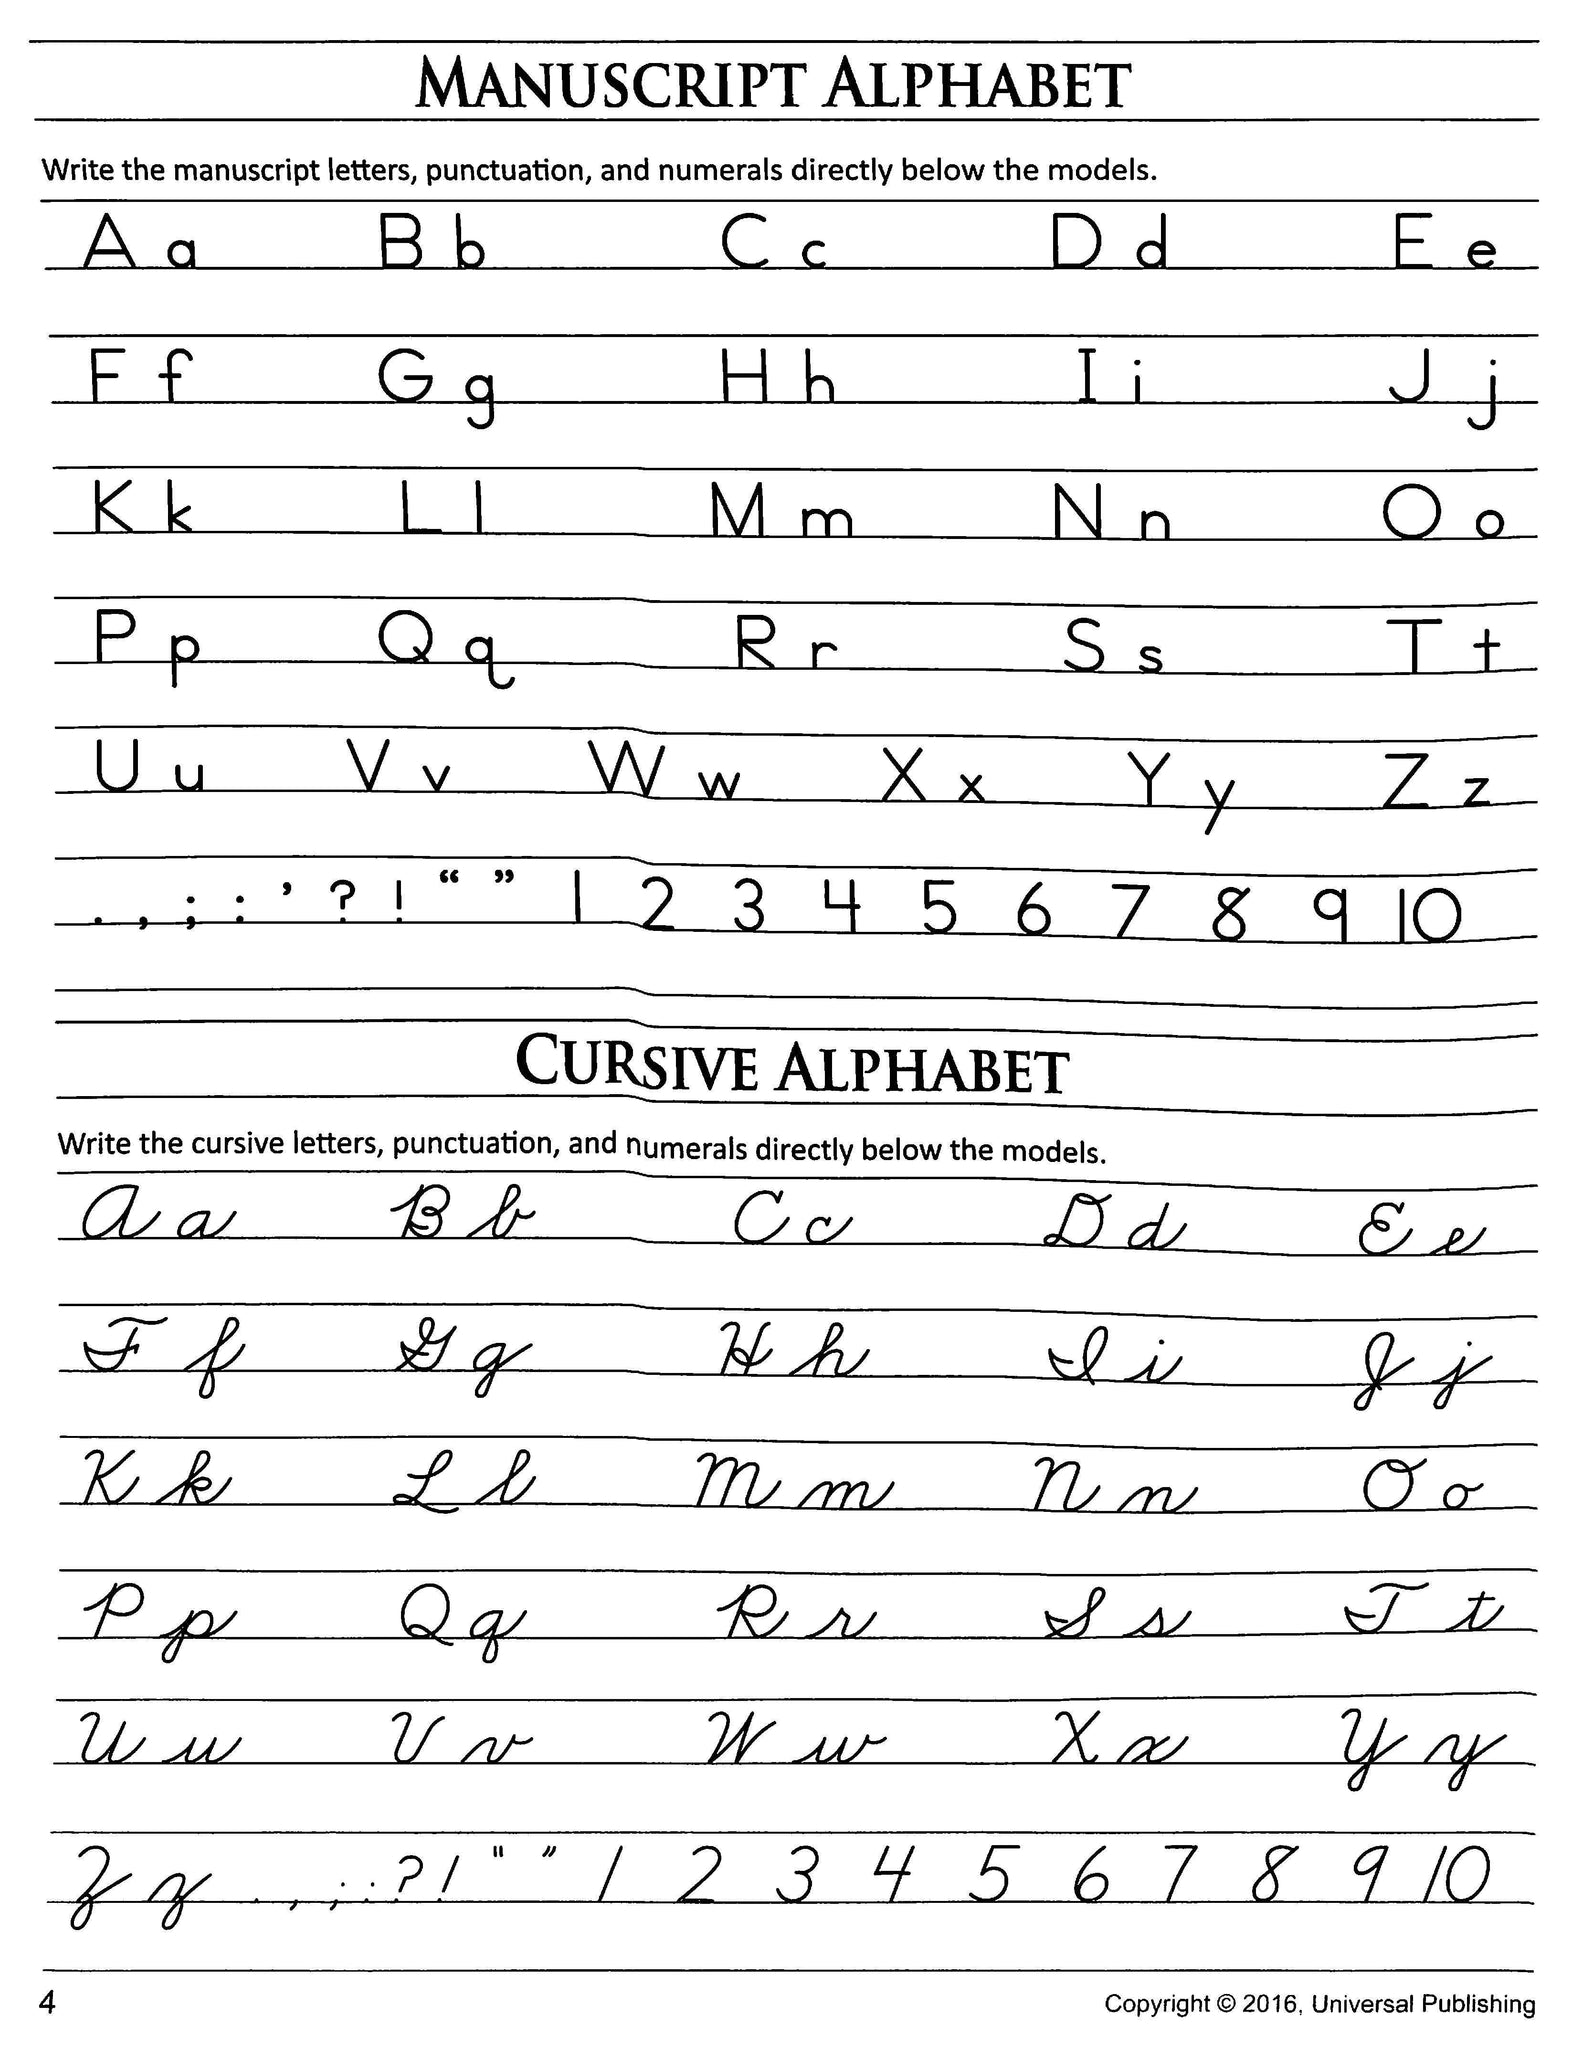 MANUSCRIPT ALPHABET
Write the manuscript letters, punctuation, and numerals directly below the models.
A a B b C c D d E e
F f G g H h I i J j
K k L l M m N n O o
P p Q q R r S s T t
U u V v W w X x Y y Z z
. , ; : ’ ? ! “ ” 1 2 3 4 5 6 7 8 9 10
CURSIVE ALPHABET
Write the cursive letters, punctuation, and numerals directly below the models.
A a B b C c D d E e
F f G g H h I i J j
K k L l M m N n O o
P p Q q R r S s T t
U u V v W w X x Y y
Z z . , ; : ? ! " ” 1 2 3 4 5 6 7 8 9 10
4 Copyright © 2016, Universal Publishing